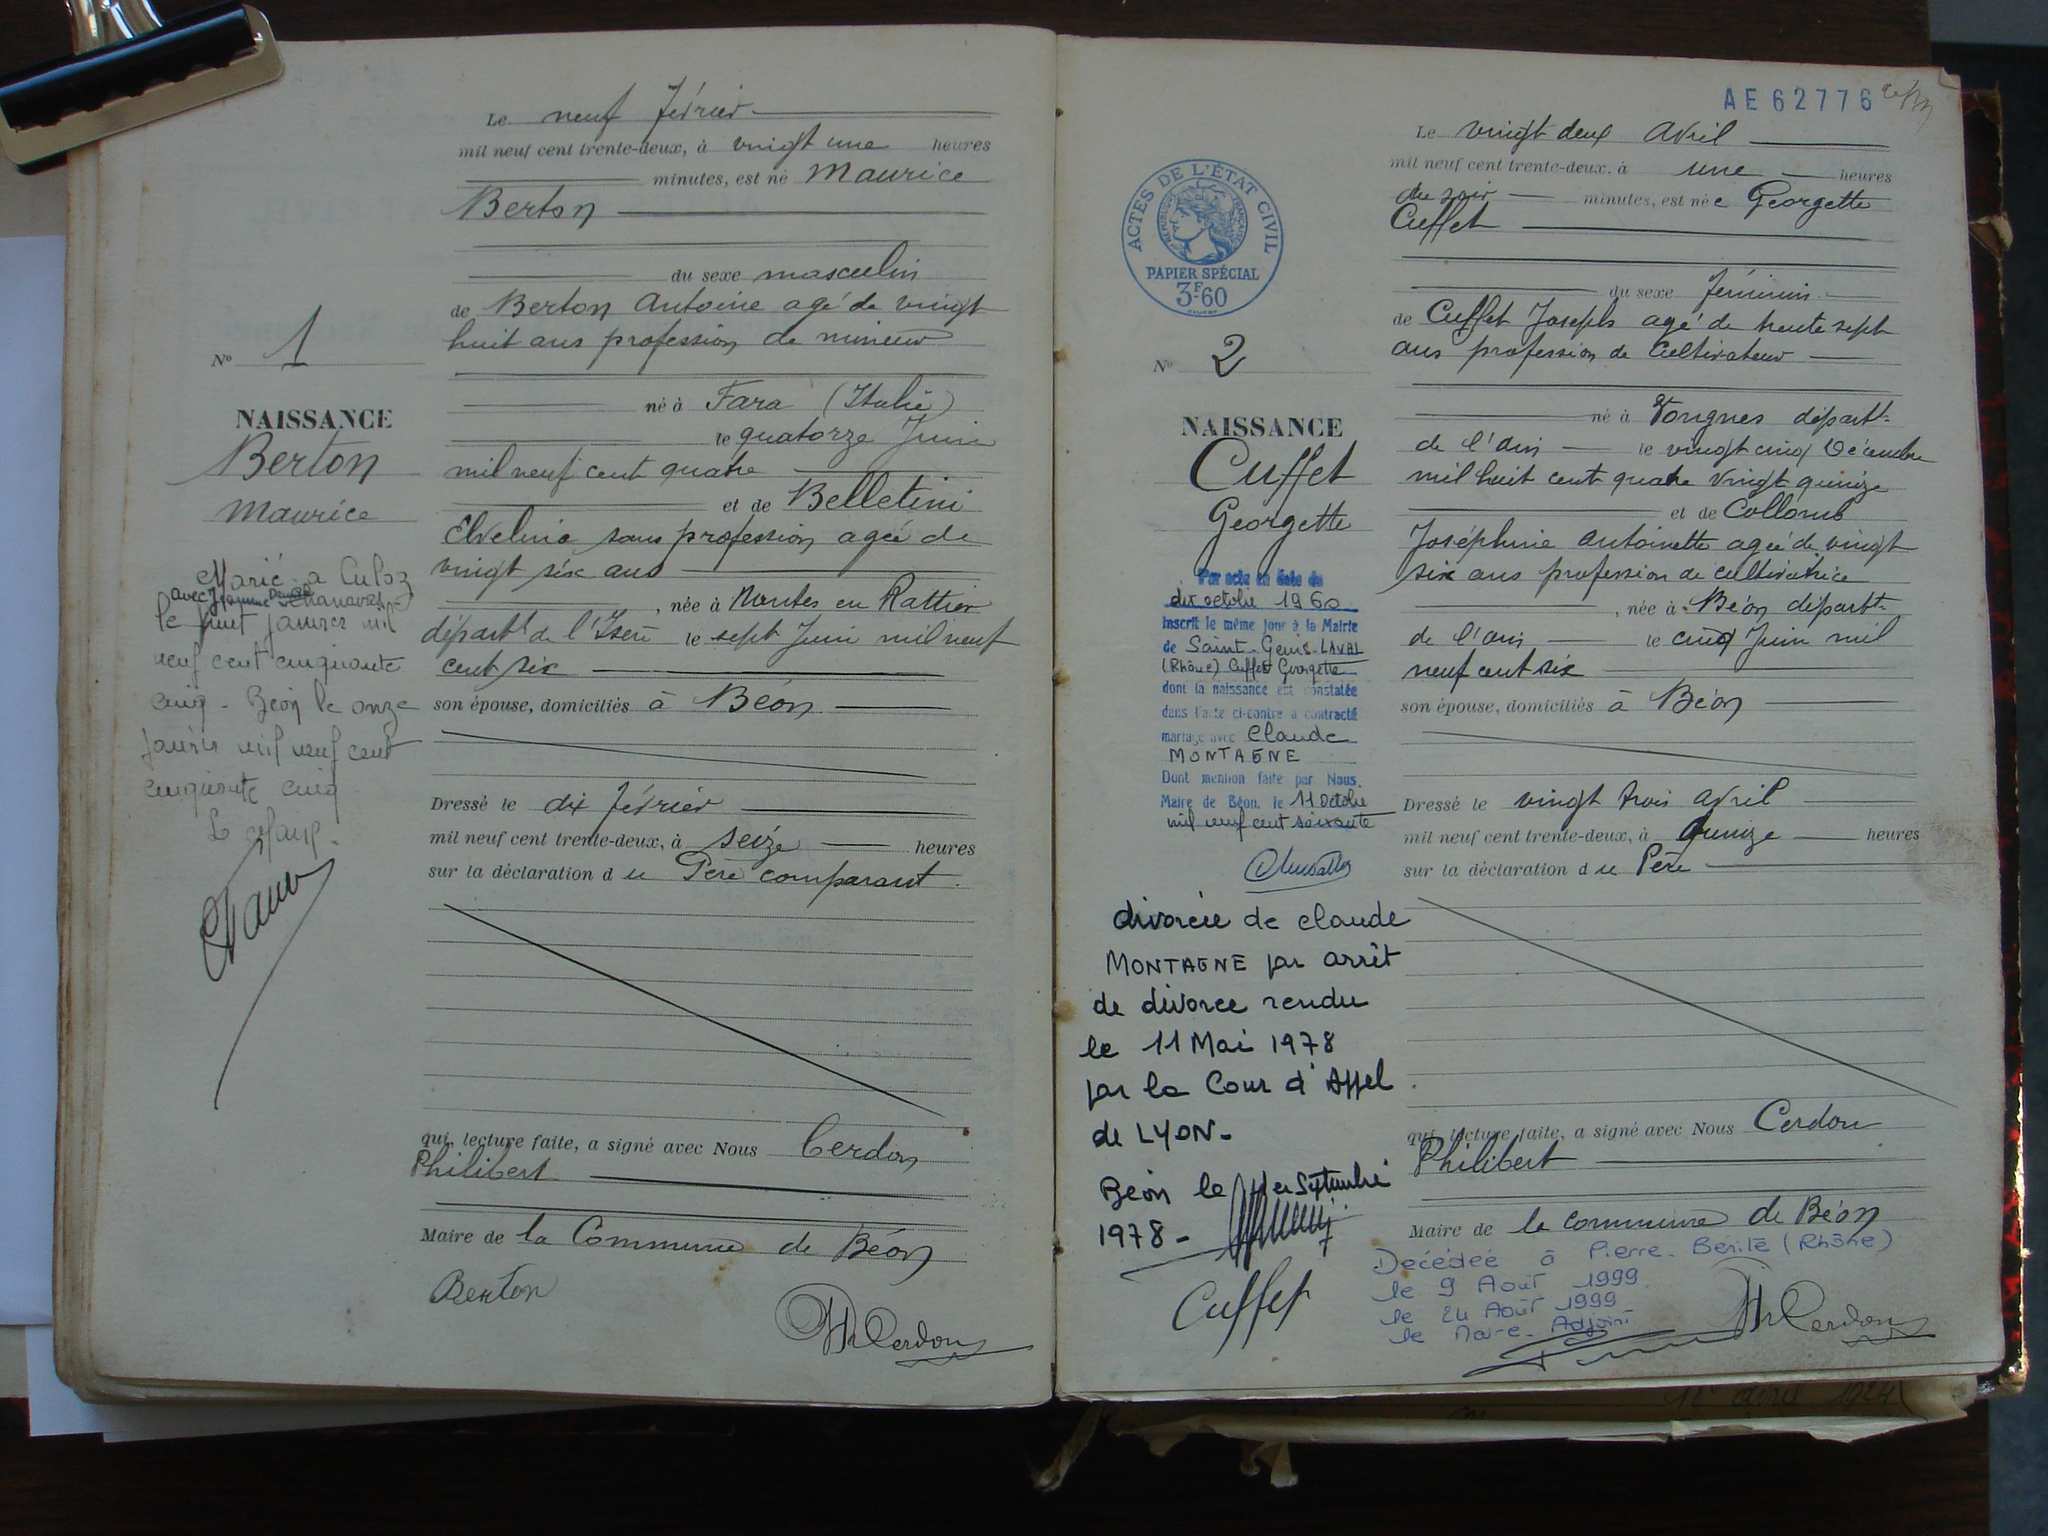 Le neuf février
mil neuf cent trente-deux, à vingt une heures
minutes, est né Maurice
Berton
du sexe masculin
de Berton Antoine agé de vingt
huit ans profession de mineur
né à Fara (Italie)
le quatorze Juin
mil neuf cent quatre
et de Belletini
Elvelina sans profession agée de
vingt six ans
, née à Nantes en Rattier
départt de l'Isère le sept Juin mil neuf
cent six
son épouse, domiciliés à Béon
Dressé le dix février
mil neuf cent trente-deux, à seize heures
sur la déclaration du Père comparant.
qui, lecture faite, a signé avec Nous Cerdon
Philibert
Maire de la Commune de Béon
Berton
Ph Cerdon
No 1
NAISSANCE
Berton
Maurice
Marié a Culoz
avec Jeanne
le huit janvier mil
neuf cent cinquante
cinq - Béon le onze
janvier mil neuf cent
cinquante cinq
Le Maire.
AE 62776
ACTES DE L'ÉTAT CIVIL
RÉPUBLIQUE FRANÇAISE
PAPIER SPÉCIAL
3F60
No 2
NAISSANCE
Cuffet
Georgette
Par acte en date du
dix octobre 1960
inscrit le même jour à la Mairie
de Saint-Genis-LAVAL
(Rhône) Cuffet Georgette
dont la naissance est constatée
dans l'acte ci-contre a contracté
mariage avec Claude
MONTAGNE
Dont mention faite par Nous
Maire de Béon, le 11 Octobre
mil neuf cent soixante
divorcée de Claude
MONTAGNE par arrêt
de divorce rendu
le 11 Mai 1978
par la Cour d'Appel
de LYON-
Béon le 1er Septembre
1978-
Cuffet
Le vingt deux Avril
mil neuf cent trente-deux, à une heures
du soir minutes, est née Georgette
Cuffet
du sexe féminin
de Cuffet Joseph agé de trente sept
ans profession de Cultivateur
né à Vongnes départt
de l'Ain le vingt cinq Décembre
mil huit cent quatre vingt quinze
et de Collomb
Joséphine Antoinette agée de vingt
six ans profession de cultivatrice
, née à Béon départt
de l'Ain le cinq Juin mil
neuf cent six
son épouse, domiciliés à Béon
Dressé le vingt trois Avril
mil neuf cent trente-deux, à Quinze heures
sur la déclaration du Père
qui, lecture faite, a signé avec Nous Cerdon
Philibert
Maire de la commune de Béon
Décédée à Pierre-Bénite (Rhône)
le 9 Août 1999
le 24 Août 1999
le Maire-Adjoint
Ph Cerdon
12 avril 1924